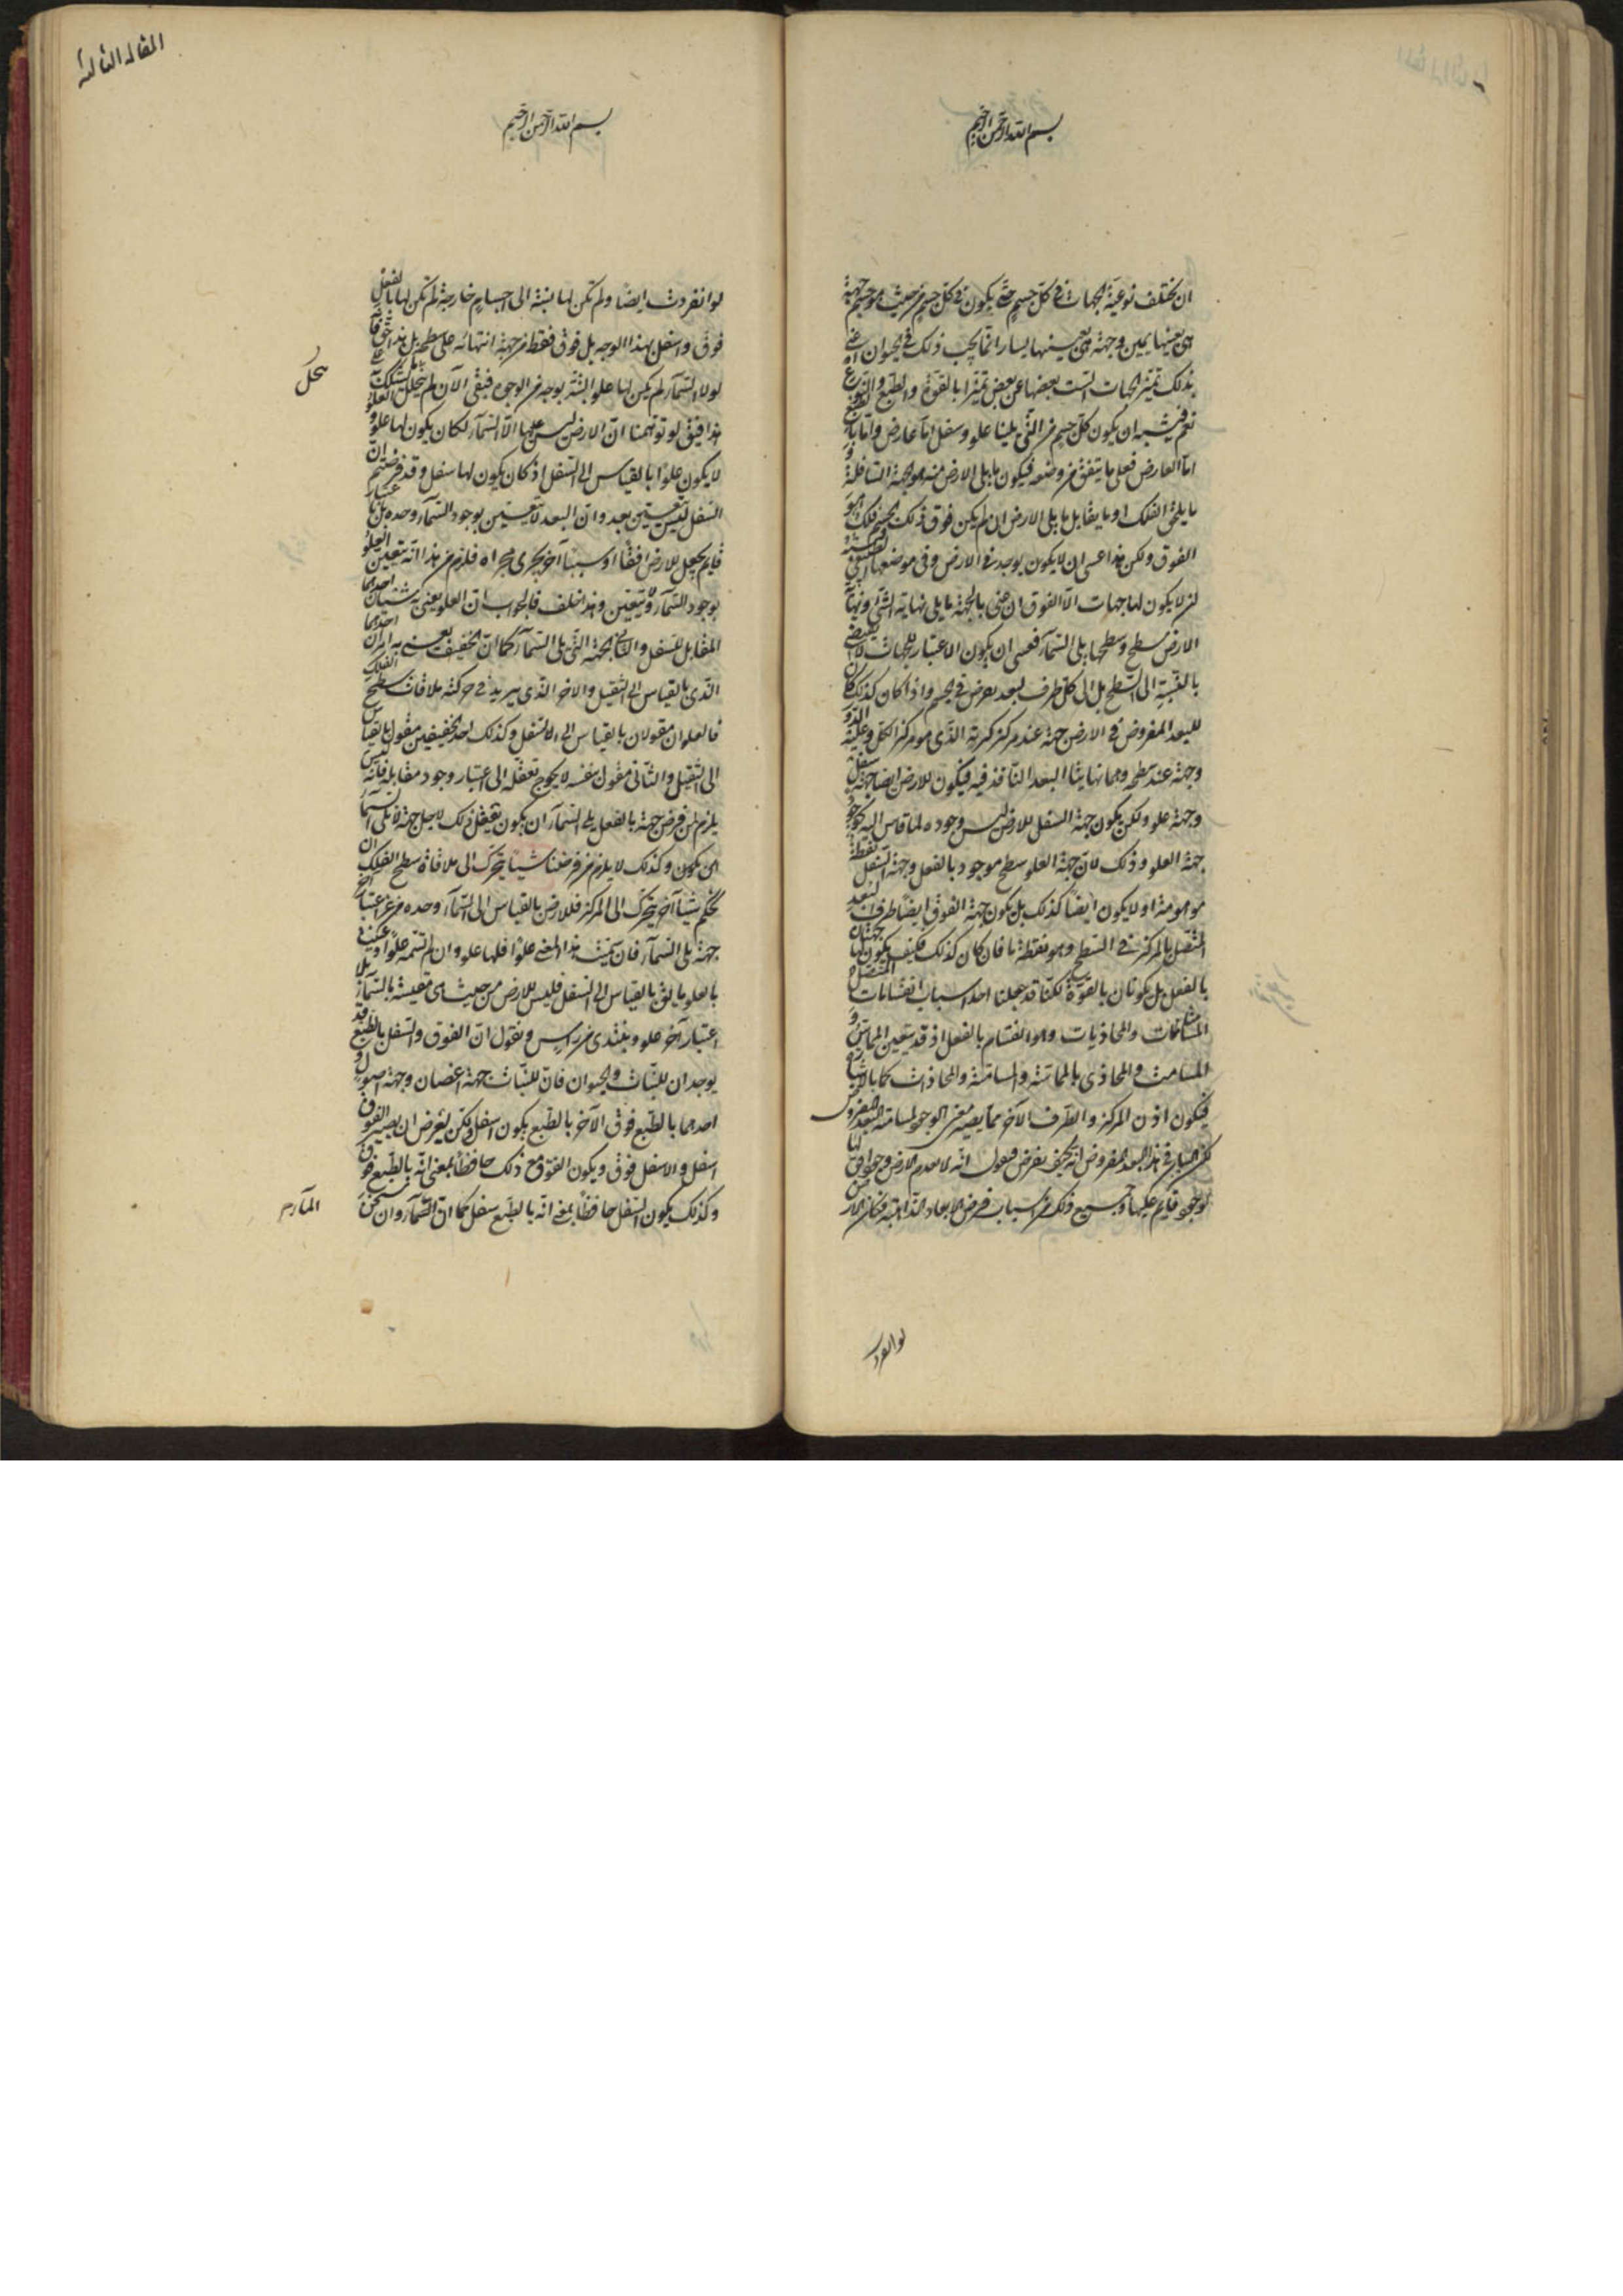 بسم الله الرحمن الرحيم
ان تختلف نوعية الجهات في كل جسم حتى يكون في كل جسم من حيث هو جسم جهة
هي بعينها يمين وجهة هي بعينها يسار انما يجب ذلك في الحيوان
بذلك تميز الجهات الست بعضها عن بعض تميزا بالقوة والطبع والنوع
نعم فيشبه ان يكون كل جسم من التي يلينا علو وسفل اما عارض واما بالطبع
اما العارض فعلى ما يتفق من وضعه فيكون ما يلي الارض منه هو الجهة السافلة و
ما يلي الفلك او ما يقابل ما يلي الارض ان لم يكن فوق ذلك الجسم فلك هو
الفوق ولكن هذا عسى ان لا يكون يوجد في الارض وفي موضعها الطبيعي
لا يكون لها جهات الا الفوق ان عنى بالجهة ما يلي نهاية الشئ ونهاية
الارض سطح وسطحها يلي السمآء فعسى ان يكون الاعتبار للجهات لا
بالنسبة الى السطح بل الى كل طرف لبعد يعرض في الجسم واذا كان كذلك كان
للبعد المفروض في الارض جهة عند مركز كرته الذي هو مركز الكل وعليه
وجهة عند سطحه وهما نهايتا البعد النافذ فيه فيكون للارض ايضا جهة سفل
وجهة علو ولكن يكون جهة السفل للارض ليس وجوده لما قاس اليه كوجود
جهة العلو وذلك لان جهة العلو سطح موجود بالفعل وجهة السفل نقطة
موهومة او لا يكون ايضا كذلك بل يكون جهة الفوق ايضا طرف البعد
المتصل بالمركز في السطح وهو نقطة ما فان كان كذلك فكيف يكون لها جهتان
بالفعل بل يكونان بالقوة لكنا قد جعلنا احد اسباب انقسامات المتصل
المسامتات والمحاذيات وهو انقسام بالفعل اذ قد يتعين المماس و
المسامت والمحاذي بالمماسة والمسامتة والمحاذات كما بالاشارة
فيكون اذن المركز والطرف الآخر مما يصير معنى الوجود لمسامتة البعد المفروض
لكن الشان في هذا البعد المفروض انه كيف يفرض فنقول انه لا يعدم الارض وجود افق لها
لوجود قايم عليها وجميع ذلك من اسباب فرض الابعاد الذاهبة فكان الارض
لو انفردت
المقالة الثالثة
بسم الله الرحمن الرحيم
لو انفردت ايضا ولم تكن لها نسبة الى اجسام خارجة لم تكن لها بالفعل
فوق واسفل بهذا الوجه بل فوق فقط من جهة انتهائه على سطحه بل هذا حق فانه
لولا السمآء لم يكن لها علو البتة بوجه من الوجوه فبقى الآن لم ينحل التشكك على
هذا فيق لو توهمنا ان الارض ليس عليها الا السمآء لكان يكون لها علو و
لا يكون علوا بالقياس الى السفل اذ كان يكون لها سفل وقد فرضتم ان
السفل ليس يتعين بعد وان البعد لا يتعين بوجود السمآء وحده بل باعتبار
قايم يجعل للارض افقا او سببا آخر يجرى مجراه فلزم من هذا انه يتعين العلو
بوجود السمآء ولا يتعين وهذا خلف فالجواب ان العلو يعنى به شيئان احدهما
المقابل للسفل والثاني الجهة التي تلى السمآء كما ان الخفيف يعنى به امران احدهما
الذي بالقياس الى الثقيل والآخر الذي يريد في حركته ملاقات سطح الفلك
فالعلوان مقولان بالقياس الى الاسفل وكذلك احد الخفيفين مقول بالقياس
الى الثقيل والثاني مقول بنفسه لا يحوج تعقله الى اعتبار وجود مقابله فانه ليس
يلزم من فرض جهة بالفعل يلى السمآء ان يكون تعقل ذلك لاجل جهة لا تلى السمآء
ان يكون وكذلك لا يلزم من فرضنا شيئا يتحرك الى ملاقاة سطح الفلك ان
نحكم شيئا آخر يتحرك الى المركز فللارض بالقياس الى السمآء وحده من غير اعتبار آخر
جهة يلى السمآء فان سميت هذا المعنى علوا فلها علو وان لم تسمه علوا وعنيت
بالعلو ما يلق بالقياس الى السفل فليس للارض من حيث هي مقيسة بالسمآء بلا
اعتبار آخر علو ونبتدى من راس ونقول ان الفوق والسفل بالطبع قد
يوجدان للنبات والحيوان فان للنبات جهة اغصان وجهة اصول و
احدهما بالطبع فوق الآخر بالطبع يكون اسفل ولكن يعرض ان يصير الفوق
اسفل والاسفل فوق ويكون الفوق مع ذلك حافظا لمعنى انه بالطبع فوق
وكذلك يكون السفل حافظا لمعنى انه بالطبع سفل كما ان السمآء وان سخن
ينحل
المآء